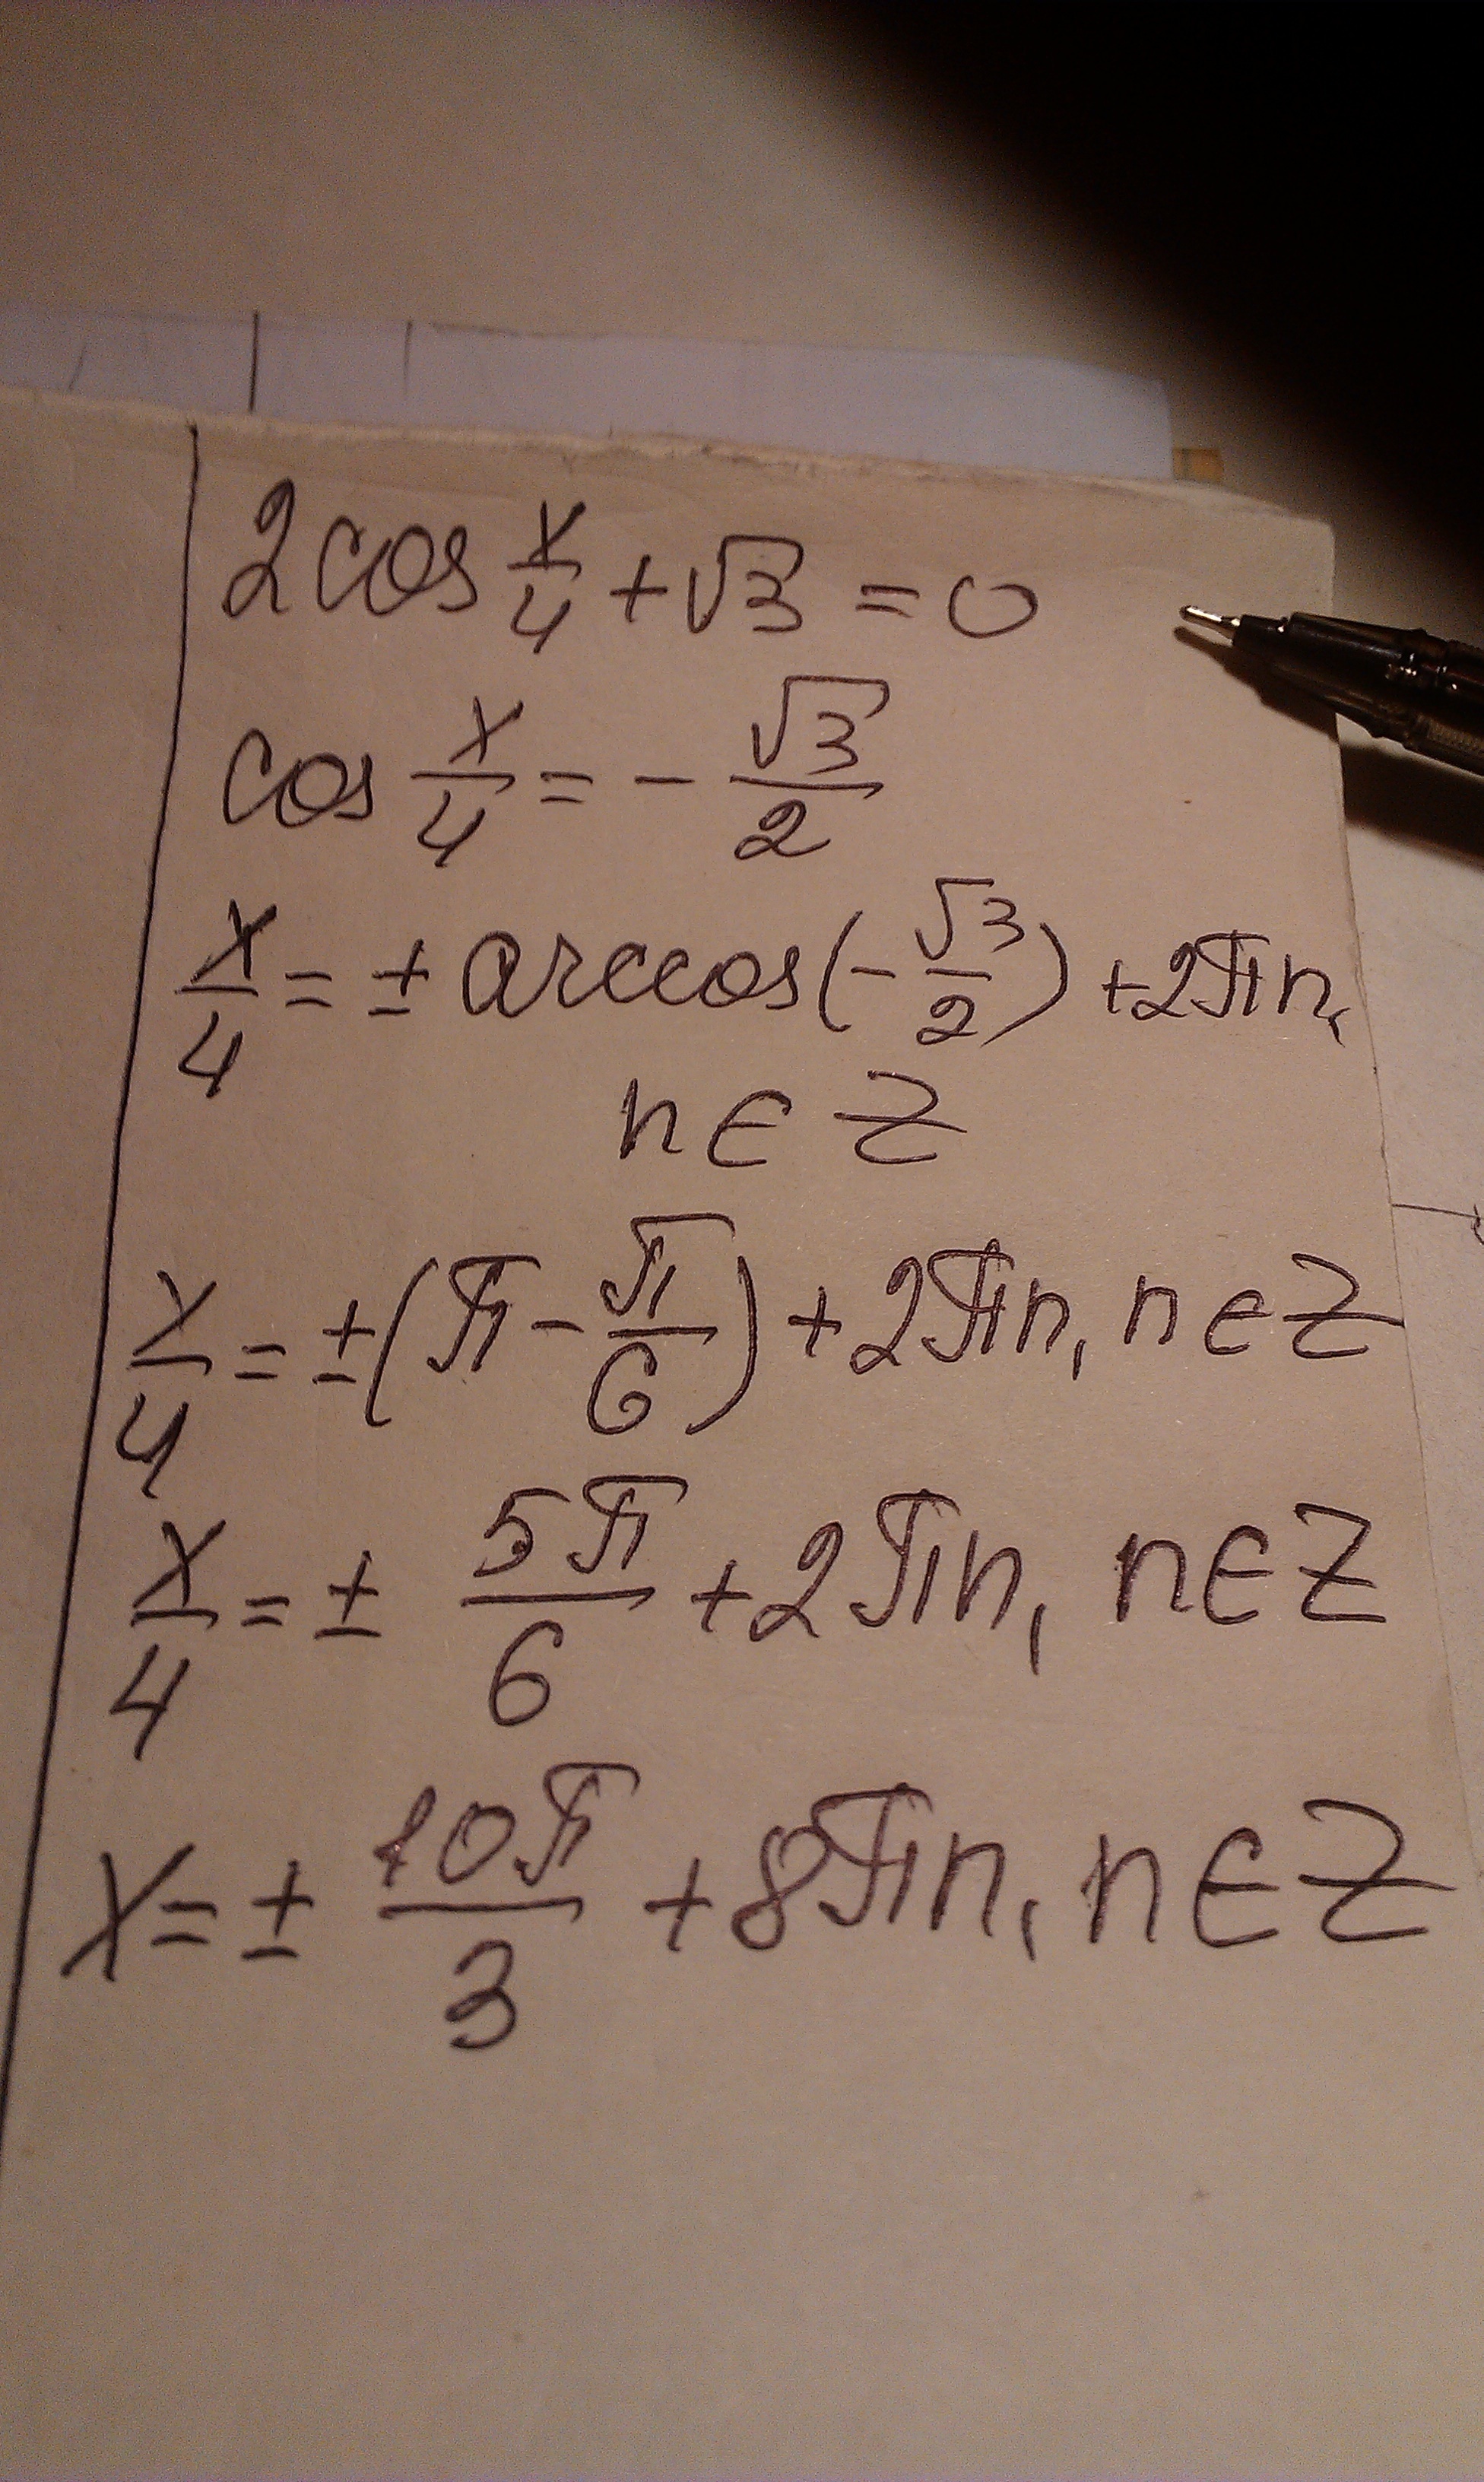 2cos x/4 + √3 = 0
cos x/4 = - √3/2
x/4 = ± arccos(- √3/2) + 2πn,
n ∈ Z
x/4 = ±(π - π/6) + 2πn, n ∈ Z
x/4 = ± 5π/6 + 2πn, n ∈ Z
x = ± 10π/3 + 8πn, n ∈ Z